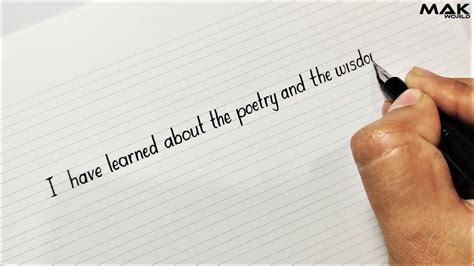 MAK
WORLD
I have learned about the poetry and the wisdo